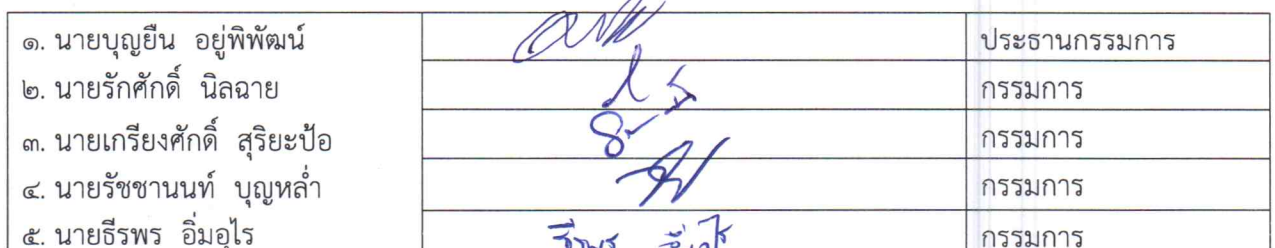 ๑. นายบุญยืน อยู่พิพัฒน์ ประธานกรรมการ
๒. นายรักศักดิ์ นิลฉาย กรรมการ
๓. นายเกรียงศักดิ์ สุริยะป้อ กรรมการ
๔. นายรัชชานนท์ บุญหล่ำ กรรมการ
๕. นายธีรพร อิ่มอุไร ธีรพร อิ่มอุไร กรรมการ